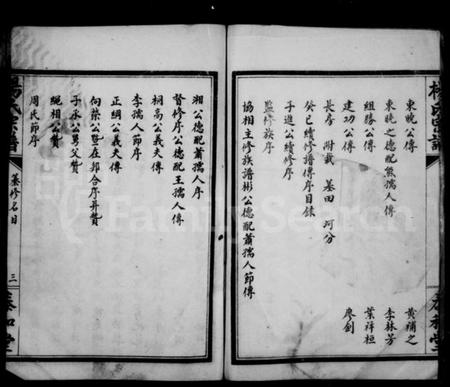 楊氏宗譜
東晚公傳
黃補之
東曉之德配熊孺人傳
李林芳
組勝公傳
葉祥桓
建功公傳
廖劍
長房 附載 基田 河分
癸巳續修譜傳序目錄
子進公續修序
監修族序
協相主修族譜彬公德配蕭孺人節傳
湘公德配蕭孺人序
督修序公德配王孺人傳
桐高公義夫傳
李孺人節序
正綱公義夫傳
向榮公暨在邦合序并贊
于承公勇父贊
繩相公贊
周氏節序
楊氏宗譜
墓修名目
三
泰和堂
FamilySearch